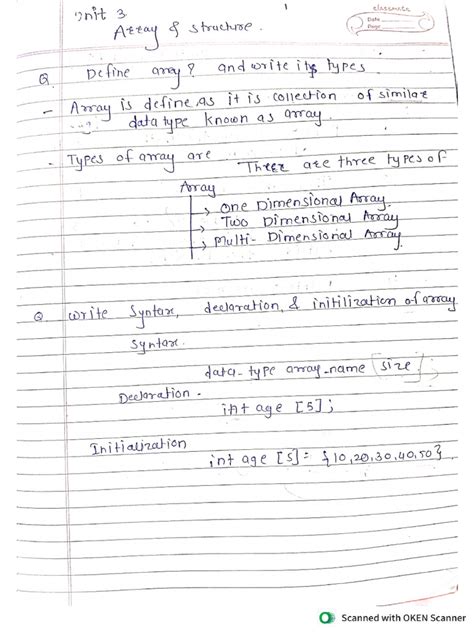 Unit 3
1
classmate
Date
Page
Array & structure.
Q. Define array? and write its types
- Array is define as it is collection of similar
data type known as array.
- Types of array are
There are three types of
Array
→ One Dimensional Array.
→ Two Dimensional Array
→ Multi-Dimensional Array.
Q write Syntax, declaration, & initilization of array
Syntax.
data-type array_name [size];
Declaration.
int age [5];
Initialization
int age [5] = {10,20,30,40,50}
Scanned with OKEN Scanner